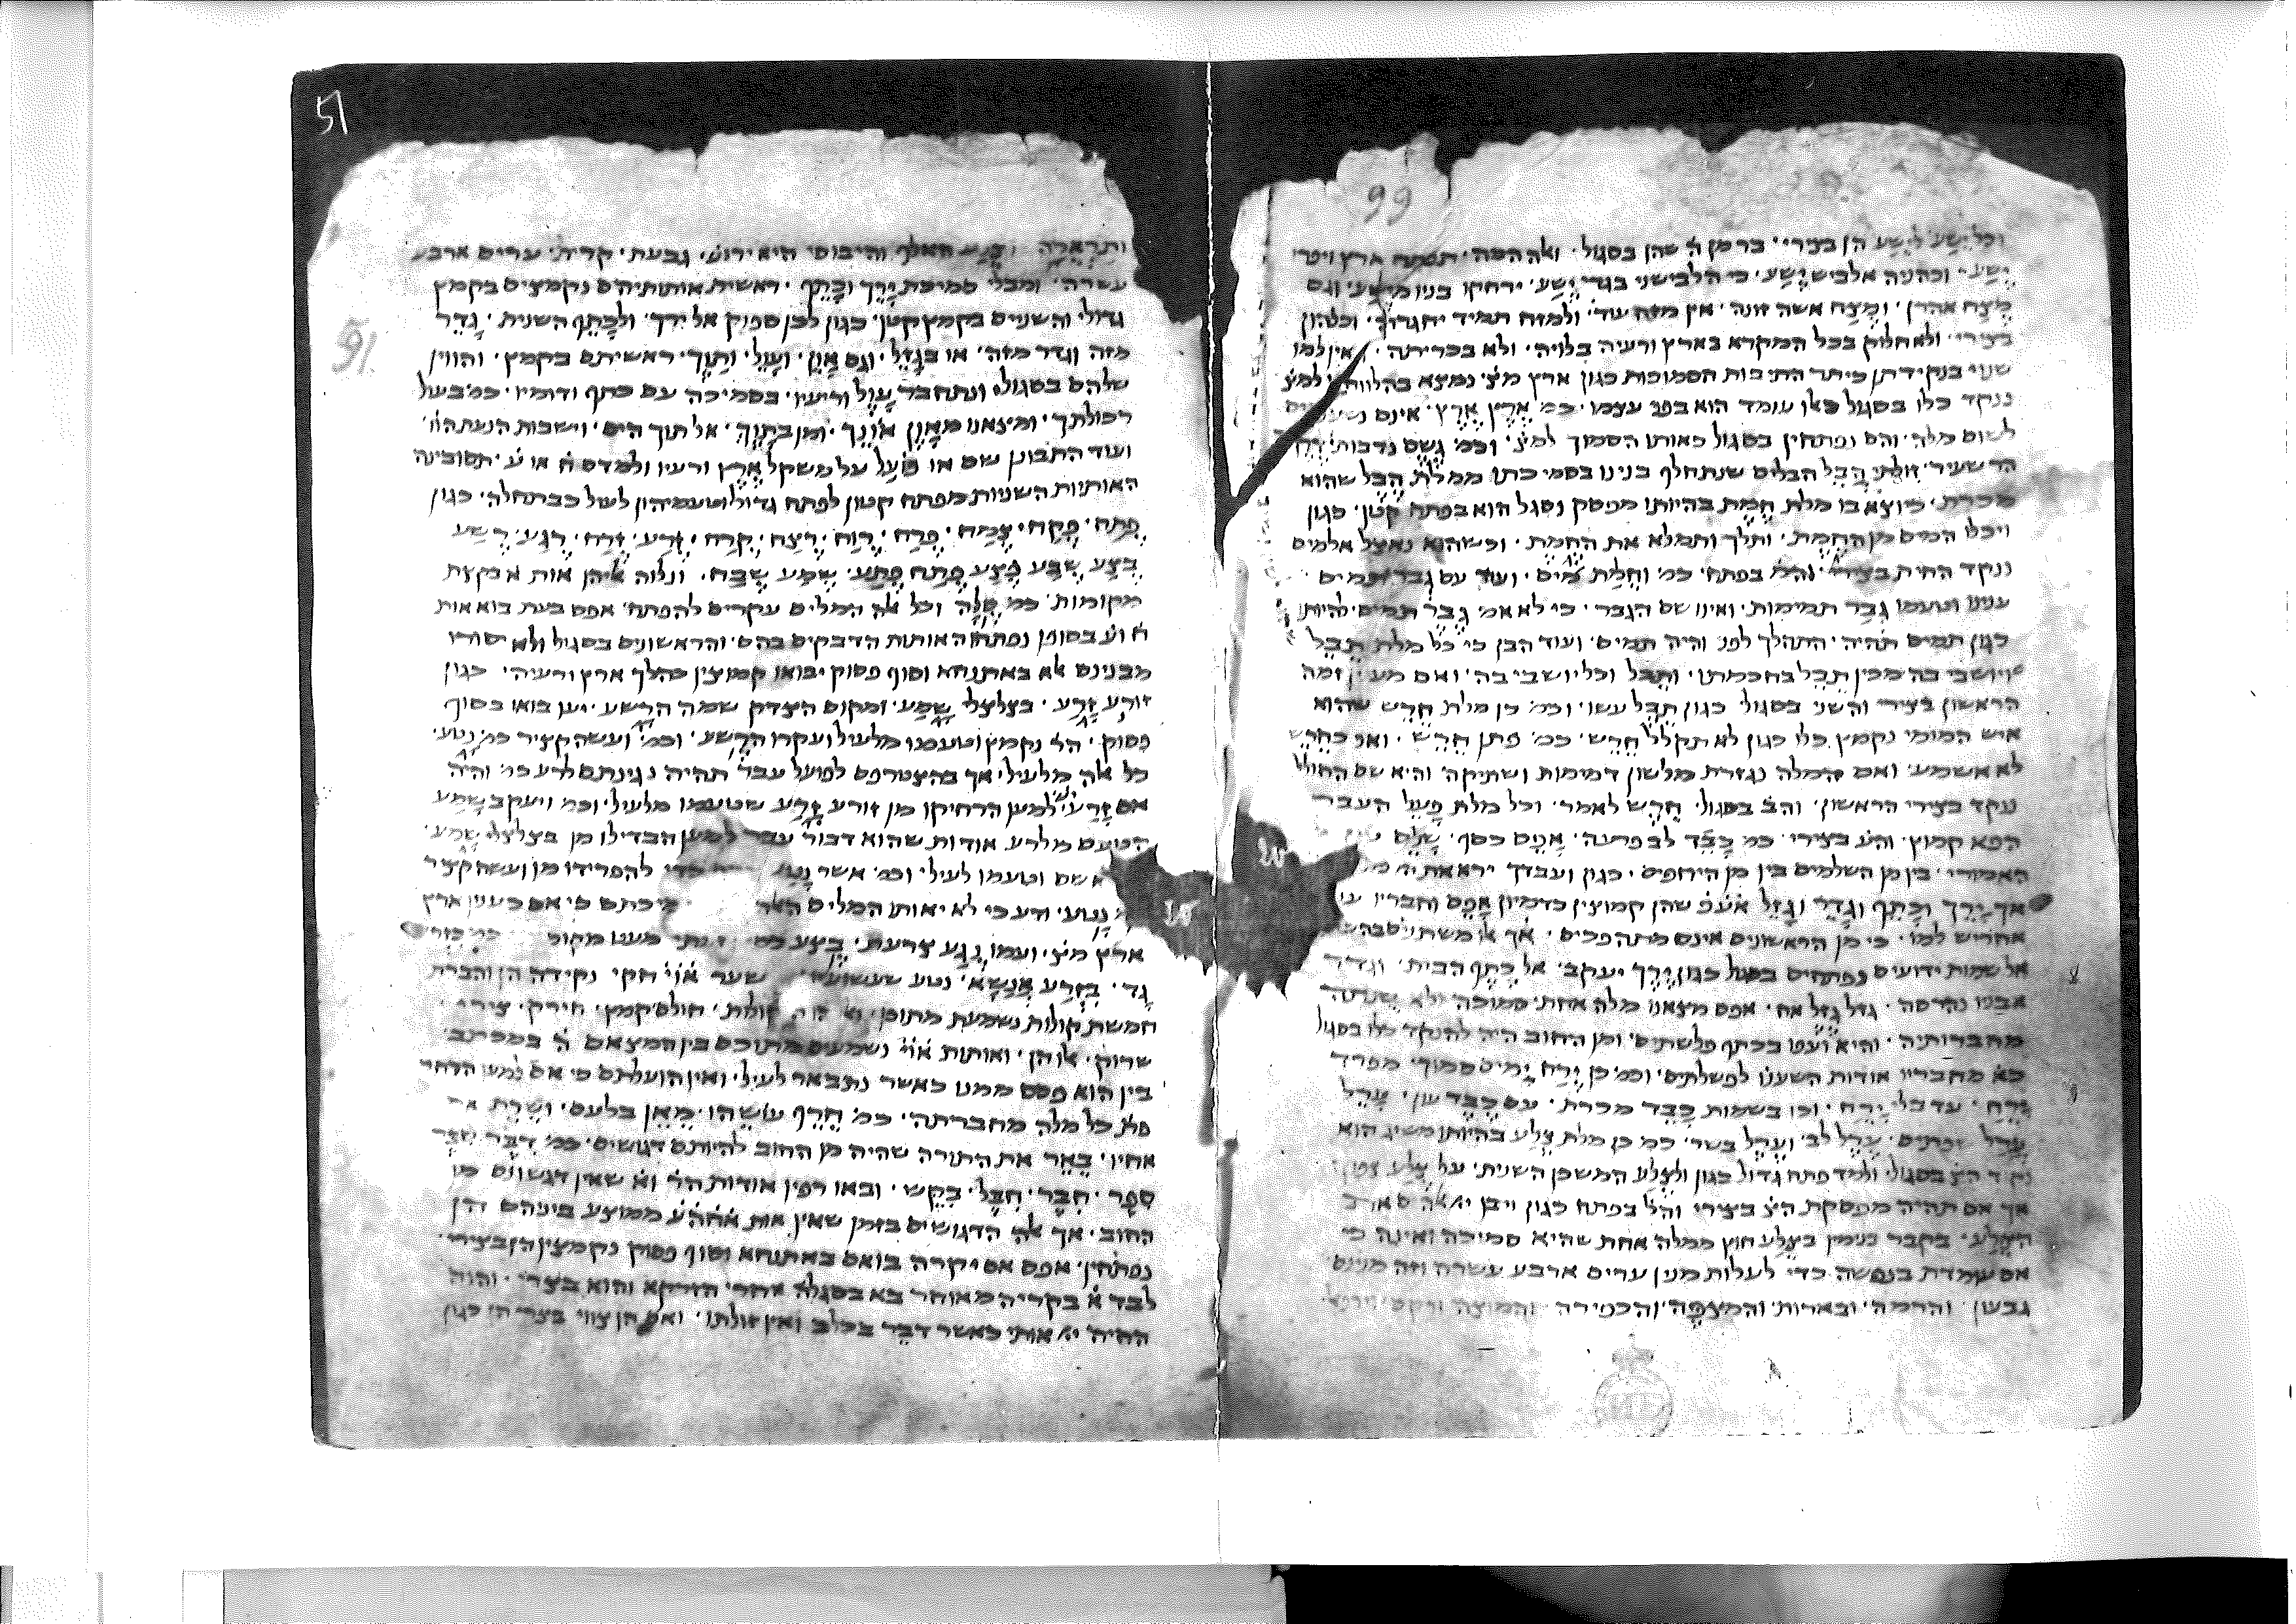 99
וכל ישע לישע הן בצירי׳ בר מן ה׳ שהן בסגול׳ ואלה הסה׳ תפתח ארץ ויפרו
ישע׳ וכהניה אלביש ישע׳ כי הלבישני בגדי ישע׳ ירחקו בניו מישע׳ וגם
מצח אהרן׳ ומצח אשה זונה׳ אין מזח עוד׳ ולמזח תמיד יחגרה׳ וכלהון
בצירי׳ ולא חלוק בכל המקרא בארץ ורעיה בלויה׳ ולא בכריתה׳ אין למו
שנוי בנקידתן כיתר התיבות הסמוכות כגון ארץ מצ׳ נמצא בהלוותו למצ׳
ננקד כלו בסגול כאלו עומד הוא בפני עצמו׳ כמ׳ ארץ ארץ׳ אינם
לשום מלה׳ והם נפתחין בסגול כאותו הסמוך למצ׳ וכמ׳ גשם נדבות׳
הר שעיר׳ זולתי הבל הבלים שנתחלף בנינו בסמיכתו ממלת הבל שהוא
מכרת׳ כיוצא בו מלת חמת בהיותו מפסק נסגל הוא בפתח קטן׳ כגון
ויכלו המים מן החמת׳ ותלך ותמלא את החמת׳ וכשהוא נאצל אלמים
ננקד החית בצירי׳ והמ׳ בפתח׳ כמ׳ וחמת מים׳ ועוד עם גבר תמים
ענינו וטעמו גבר תמימות׳ ואינו שם הגבר׳ כי לא אמ׳ גבר תמים להיותו
כגון תמים תהיה׳ התהלך לפני והיה תמים׳ ועוד הבן כי כל מלת תבל
ויושבי בה מכין תבל בחכמתו׳ ותבל וכל יושבי בה׳ ואם מענין זמה
הראשון בצירי והשני בסגול׳ כגון תבל עשו׳ וכמ׳ כן מלת חרש שהוא
איש המומי נקמץ כלו כגון לא תקלל חרש׳ כמ׳ פתן חרש׳ ואני כחרש
לא אשמע׳ ואם המלה נגזרת מלשון דמימות ושתיקה׳ והיא שם החולי
ננקד בצירי הראשון׳ והב׳ בסגול׳ חרש לאמר׳ וכל מלת פעל העבר
הפא קמוץ׳ והע׳ בצירי׳ כמ׳ כבד לב פרעה׳ אפס כסף׳ שלם
האמורי׳ בין מן השלמים בין מן הירופים׳ כגון ועבדך ירא את
אך ירך וכתף וגדר וגזל אעפ שהן קמוצין כדמיון אפס וחבריו
אחריש למו׳ כי מן הראשונים אינם מתהפכים׳ אך אלו משתנים
אל שמות ידועים נפתחים בסגול כגון ירך יעקב׳ אל כתף הבית׳ וגדר
אבניו נהרסה׳ גזל גזל אח׳ אפס מצאנו מלה אחת סמוכה ולא שנתה
מחברותיה׳ והיא ועפו בכתף פלשתים׳ ומן החוב היה להנקד כלו בסגול
כא׳ מחבריו אודות השענו לפשלתים׳ וכמ׳ כן ירח ימים סמוך׳ מפרד
ירח׳ עד בלי ירח׳ וכן בשמות כבד מכרת׳ עם כבד עון׳ ערל
ערל שפתים׳ ערל לב׳ וערל בשר׳ כמ׳ כן מלת צלע בהיותו משיג הוא
נקוד הצ׳ בסגול׳ ולמד פתח גדול כגון ולצלע המשכן השנית׳ על צלע
אך אם תהיה מפסקת הצ׳ בצירי והל׳ בפתח כגון ויבן יי׳ אלהים את
הצלע׳ בקבר בנימן בצלע חוץ ממלה אחת שהיא סמיכה ואינה כי
אם עומדת בנפשה כדי לעלות מנין ערים ארבע עשרה וזה מנינם
גבעון והרמה׳ ובארות׳ והמצפה׳ והכפירה והמוצה ורקם׳ וירפאל
51
51.
ותראלה וצלע האלף והיבוסי היא ירוש׳ גבעת׳ קרית׳ ערים ארבע
עשרה׳ ומבלי סמיכת ירך וכתף׳ ראשית אותותיהם נקמצים בקמץ
גדול׳ והשניים בקמץ קטן׳ כגון לכן ספוק אל ירך׳ ולכתף השנית׳ גדר
מזה וגדר מזה׳ או בגזל׳ וגם און׳ ועול׳ ותוך׳ ראשיתם בקמץ׳ והווין
שלהם בסגול׳ ונתחבר עול וריעיו׳ בסמיכה עם כתף ודומיו׳ כמ׳ בעול
רכולתך׳ ומצאנו מאון אונך׳ ומן בתוך׳ אל תוך הים׳ וישבות הנעת הוו׳
ועוד התבונן שם או פועל על משקל ארץ ורעיו ולמדם ח׳ או ע׳ תסובינה
האותיות השניות מפתח קטון לפתח גדול וטעמיהון לעיל כבתחלה׳ כגון
פתח׳ פקח׳ צמח׳ פרח׳ רוח׳ רצח׳ קרח׳ זרע׳ זרח׳ רגע׳ רשע
בצע שבע פצע פתח פתע׳ שמע שבח׳ ונלוה אליהן אות א׳ בקצת
מקומות׳ כמ׳ פלא וכל אלה המלים עקרים להפתח׳ אפס בעת בוא אות
ח׳ וע׳ בסופן נפתחו האותות הדבקים בהם׳ והראשונים בסגול ולא יסורו
מבנינם אלא באתנחא וסוף פסוק יבואו קמוצין כהלך ארץ ורעיה׳ כגון
זורע זרע׳ בצלצלי שמע׳ ומקום הצדק שמה הרשע׳ יען בואו בסוף
פסוק׳ הר׳ נקמץ וטעמנו מלעיל ועקרו הרשע׳ וכמ׳ ועשה קציר כמ׳ נטע׳
כל אלה מלעיל׳ אך בהצטרפם לפועל עבר׳ תהיה נגינתם לרע כמ׳ והיה
אם זרע׳ למען הרחיקו מן זורע זרע שטעמו מלעיל׳ וכמ׳ ויעקב שמע
הטעם מלרע אודות שהוא דבור עבר למען הבדילו מן בצלצלי שמע׳
שם וטעמו לעיל׳ וכמ׳ אשר נטע כדי להפרידו מן ועשה קציר
נטע׳ ודע כי לא יאותו המלים האלה כי אם כענין ארץ
ארץ מצ׳ ועמו נגע צרעת׳ בצע מעט מקומ׳
גד׳ בזרע אנשא׳ נטע שעשועיו׳ שער אוי׳ חקי׳ נקידה הן והברת
חמשת קולות נשמעת מתוכן׳ קולות׳ חולם קמץ׳ חירק׳ צירי
שרוק׳ אלו הן׳ ואותות אוי׳ נשמעים מתוכם בין המצאם ה׳ במכתב׳
בין הוא פסס ממנו כאשר נתבאר לעיל׳ ואין הועלתם כי אם למען הדחר
פא׳ כל מלה מחברתה׳ כמ׳ חרף עושהו׳ מאן בלעם׳ ושרת את
אחיו׳ באר את התורה שהיה מן החוב להיותם דגושים׳ כמ׳ דבר
ספר׳ חבר׳ חבל׳ בקש׳ ובאו רפין אודות הר׳ וא׳ שאין דגשונם מן
החוב׳ אך אלה הדגושים בזמן שאין אות אחהע ממוצע ביניהם הן
נפתחין׳ אפס אם יקרה בואם באתנחא וסוף פסוק נקמצין הן בצירי׳
לבד א׳ בקריה מאוחר בא בסגולה אחרי הזרקא והוא בצרי׳ והוה
החיה יי׳ אותי כאשר דבר בכלב ואין זולתו׳ ואם הן צווי בצרי הן כגון